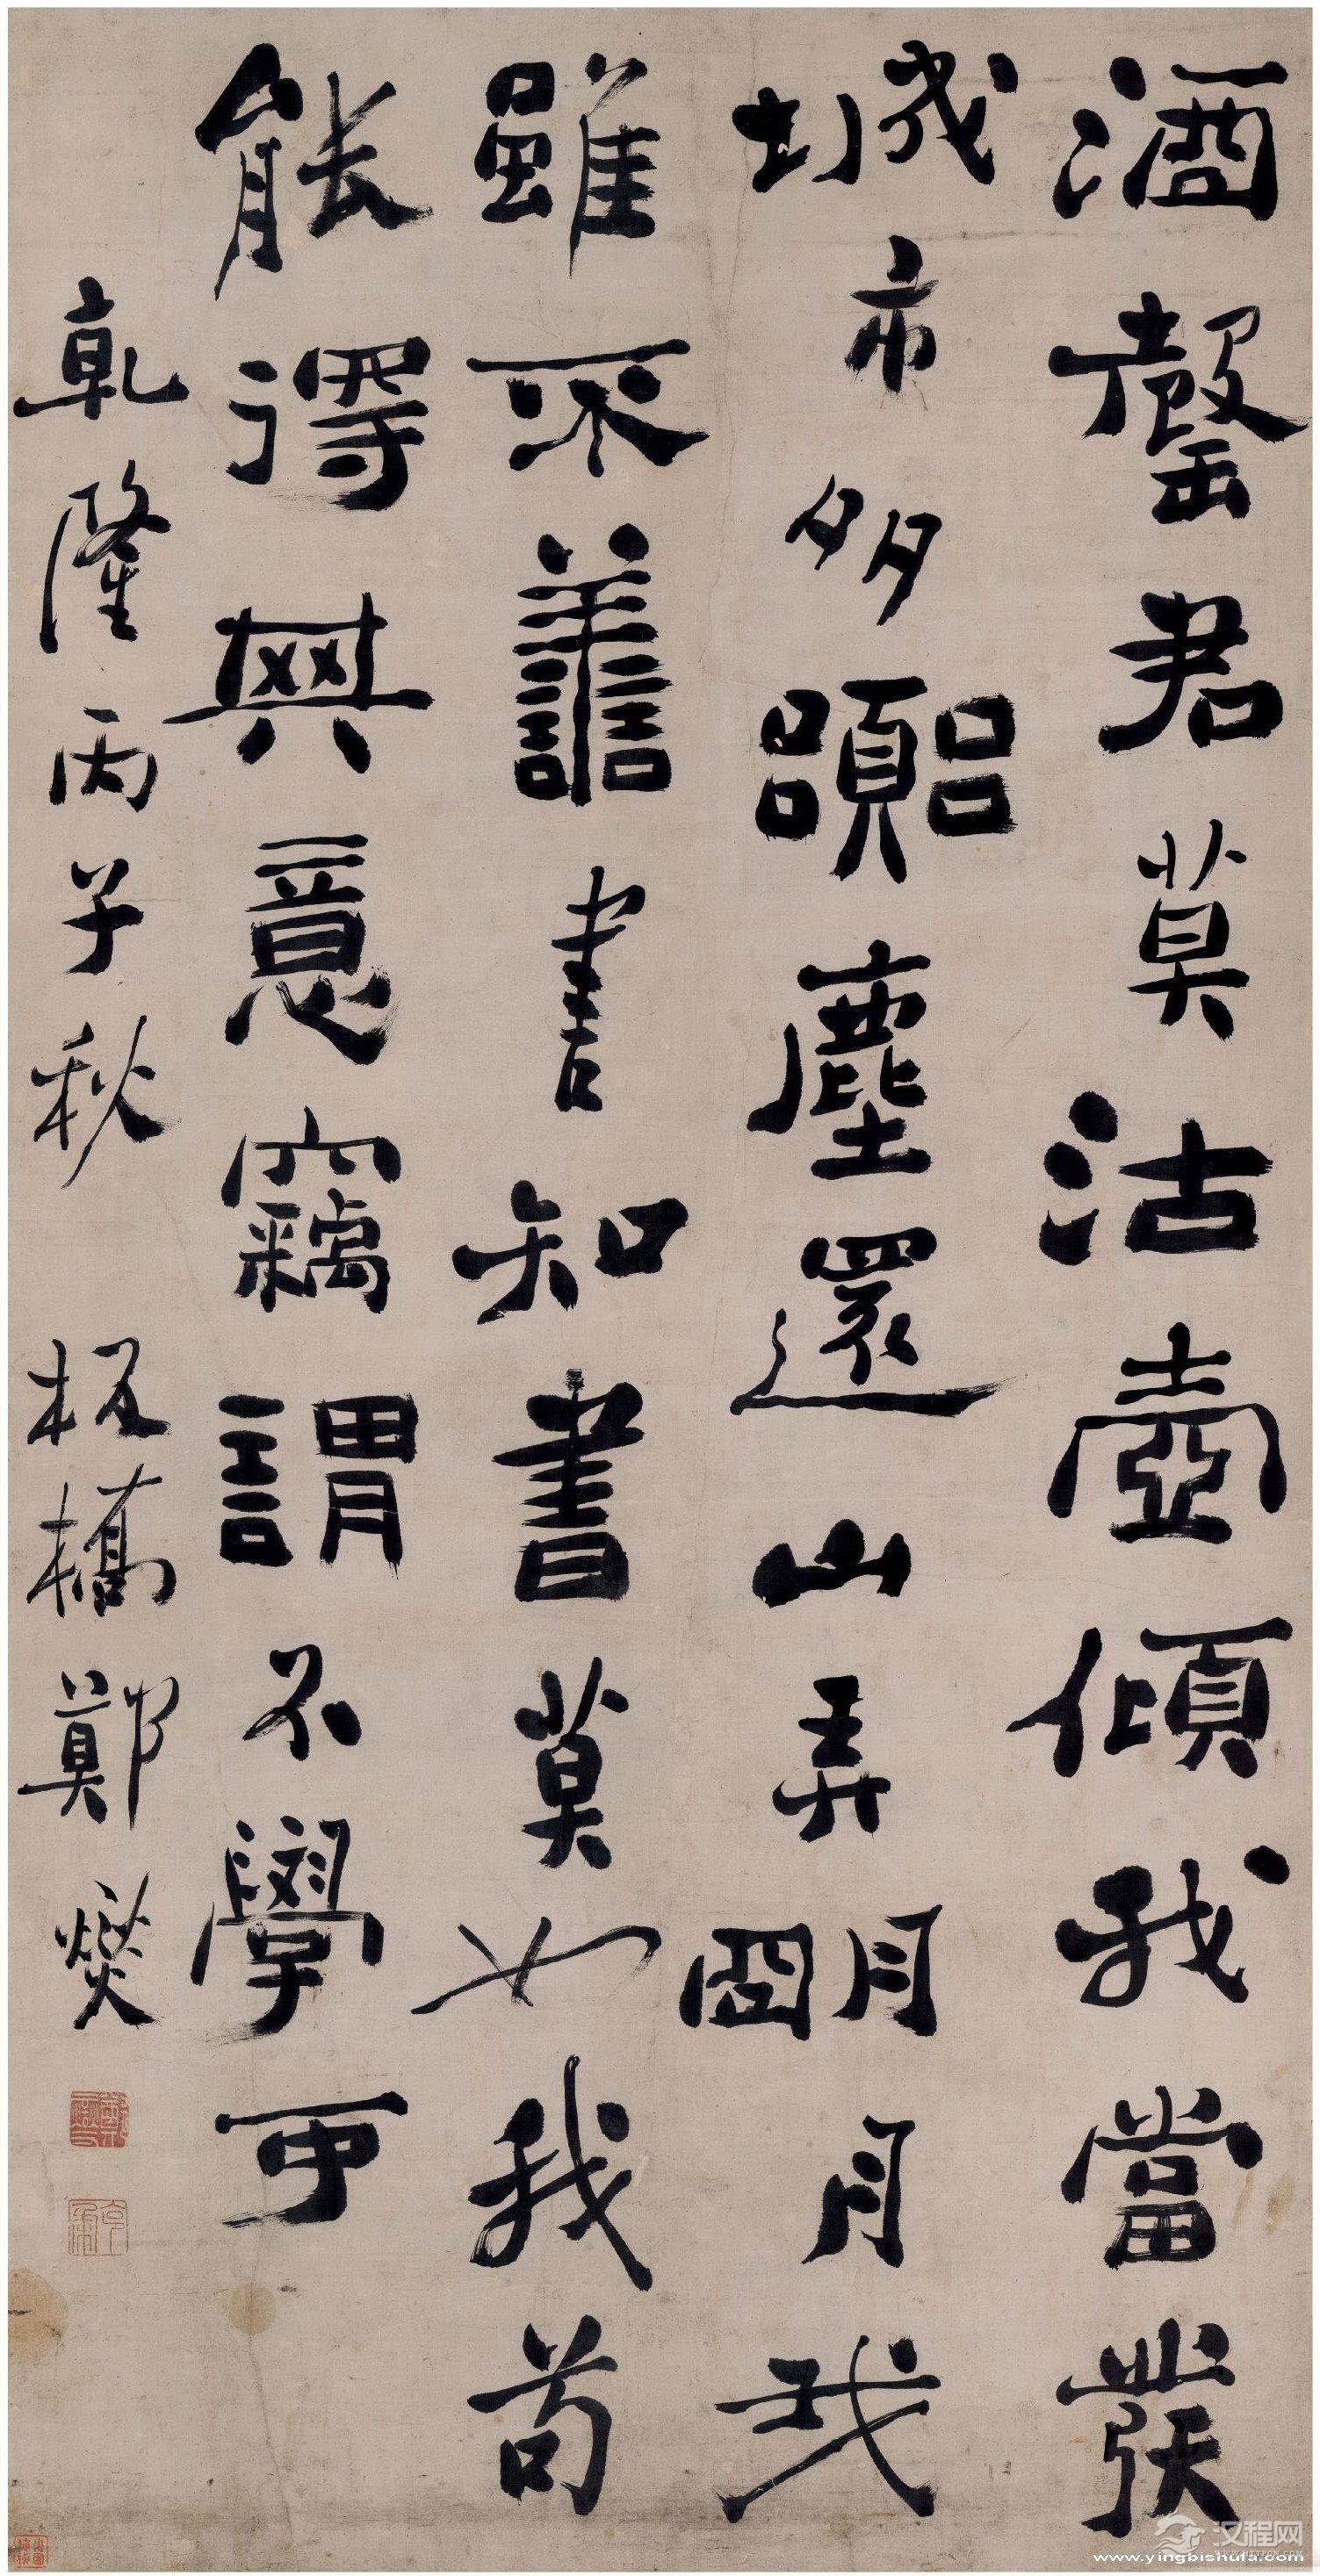 酒罄君莫沽壺傾我當發
城市多囂塵還山弄明月我
雖不善書知書莫如我苟
能得其意竊謂不學可
乾隆丙子秋 板橋鄭燮
汉程网
www.yingbishufa.com